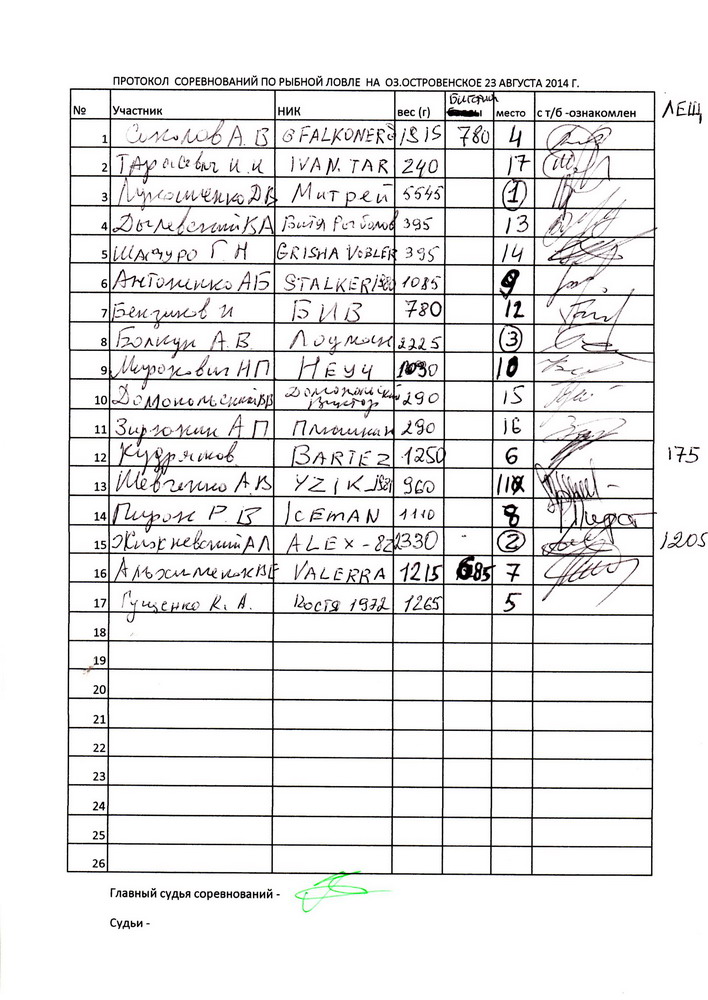 ПРОТОКОЛ СОРЕВНОВАНИЙ ПО РЫБНОЙ ЛОВЛЕ НА ОЗ.ОСТРОВЕНСКОЕ 23 АВГУСТА 2014 Г.
№ Участник НИК вес (г) место с т/б -ознакомлен ЛЕЩ
1 Соколов А. В @FALKONER@ 1315 780 4
2 Тарасевич И. И IVAN. TAR 240 17
3 Лукашенко ДВ Митрей 5545 1
4 Дылевский В А Витя Рыболов 395 13
5 Шащуро Г Н GRISHA VOBLER 395 14
6 Антоненко АБ STALKER1980 1085 9
7 Бензиков И БИВ 780 12
8 Болкун А. В. Лоцман 2225 3
9 Миронович НП НЕУЧ 1030 10
10 Домопольский ВВ Домопольский Виктор 290 15
11 А П 290 16
12 Кудряшов BARTEZ 1250 6 175
13 Шевченко А. В YZIK_1821 960 11
14 Пирон Р. В ICEMAN 1110 8
15 Жижневский АЛ ALEX-82 2330 2 1205
16 Альхименок ВЕ VALERRA 1215 685 7
17 Гущенко К. А. Костя 1972 1265 5
18
19
20
21
22
23
24
25
26
Главный судья соревнований -
Судьи -